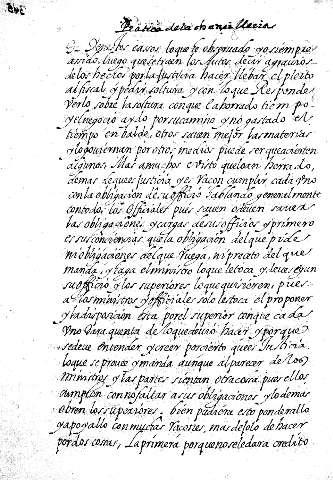 Pratica de la chancilleria
En estos casos, lo que he observado yo siempre
a sido, luego que se traen los autos, decir a
de los hechos por la Justicia hacer llebar el pleito
al fiscal, y pedir soltura, y con lo que Responde
verlo sobre la soltura con que la ahorrado tiempo
y el negocio a ydo por su camino y no gastado el
tiempo en balde, otros saven mejor las materias
y lo goviernan por otros medios puede ser que acierten
algunos, Mas a muchos e visto que lo an herrado,
demas de que es justicia y es Razon cumplir cada uno
con la obligacion de su officio hablando generalmente
con todos los Officiales pues saven o deven saver
las obligaciones y cargas de sus officios y primero
es su consciencia que la obligacion del que pide
ni obligaciones del que Ruega, ni precato del que
manda, y haga el ministro lo que le toca, y deve en
su officio, y los superiores lo que quisieren, pues
a los ministros y officiales solo les toca el proponer
y la disposicion esta por el superior conque cada
uno dara quenta de lo que devio hacer, y porque
se deve entender, y creer por cierto que es Justicia
lo que se provee y manda aunque al parecer de los
ministros y las partes sientan otra cosa, pues ellos
cumplen con no faltar a sus obligaciones, y lo demas
obren los superiores. bien pudiera esto ponderallo
y apoyallo con muchas racones, mas dejolo de hacer
por dos cosas, La primera porque no se le dara credito